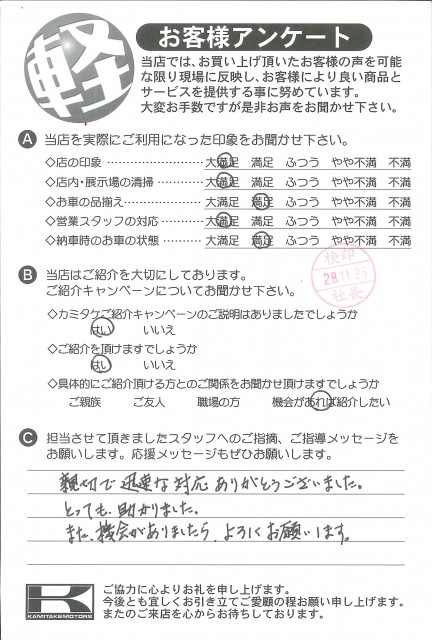 軽
お客様アンケート
当店では、お買い上げ頂いたお客様の声を可能
な限り現場に反映し、お客様により良い商品と
サービスを提供する事に努めています。
大変お手数ですが是非お声をお聞かせ下さい。
A 当店を実際にご利用になった印象をお聞かせ下さい。
◇店の印象 ………………… 大満足 満足 ふつう やや不満 不満
◇店内・展示場の清掃………… 大満足 満足 ふつう やや不満 不満
◇お車の品揃え……………… 大満足 満足 ふつう やや不満 不満
◇営業スタッフの対応 ……… 大満足 満足 ふつう やや不満 不満
◇納車時のお車の状態 ……… 大満足 満足 ふつう やや不満 不満
検印
28.11.25
社長
B 当店はご紹介を大切にしております。
ご紹介キャンペーンについてお聞かせ下さい。
◇カミタケご紹介キャンペーンのご説明はありましたでしょうか
はい いいえ
◇ご紹介を頂けますでしょうか
はい いいえ
◇具体的にご紹介頂ける方とのご関係をお聞かせ頂けますでしょうか
ご親族 ご友人 職場の方 機会があれば紹介したい
C 担当させて頂きましたスタッフへのご指摘、ご指導メッセージを
お願いします。応援メッセージもぜひお願いします。
親切で迅速な対応ありがとうございました。
とっても助かりました。
また、機会がありましたら、よろしくお願いします。
K
KAMITAKEMOTORS
ご協力に心よりお礼を申し上げます。
今後とも宜しくお引き立てご愛顧の程お願い申し上げます。
またのご来店を心からお待ちしております。